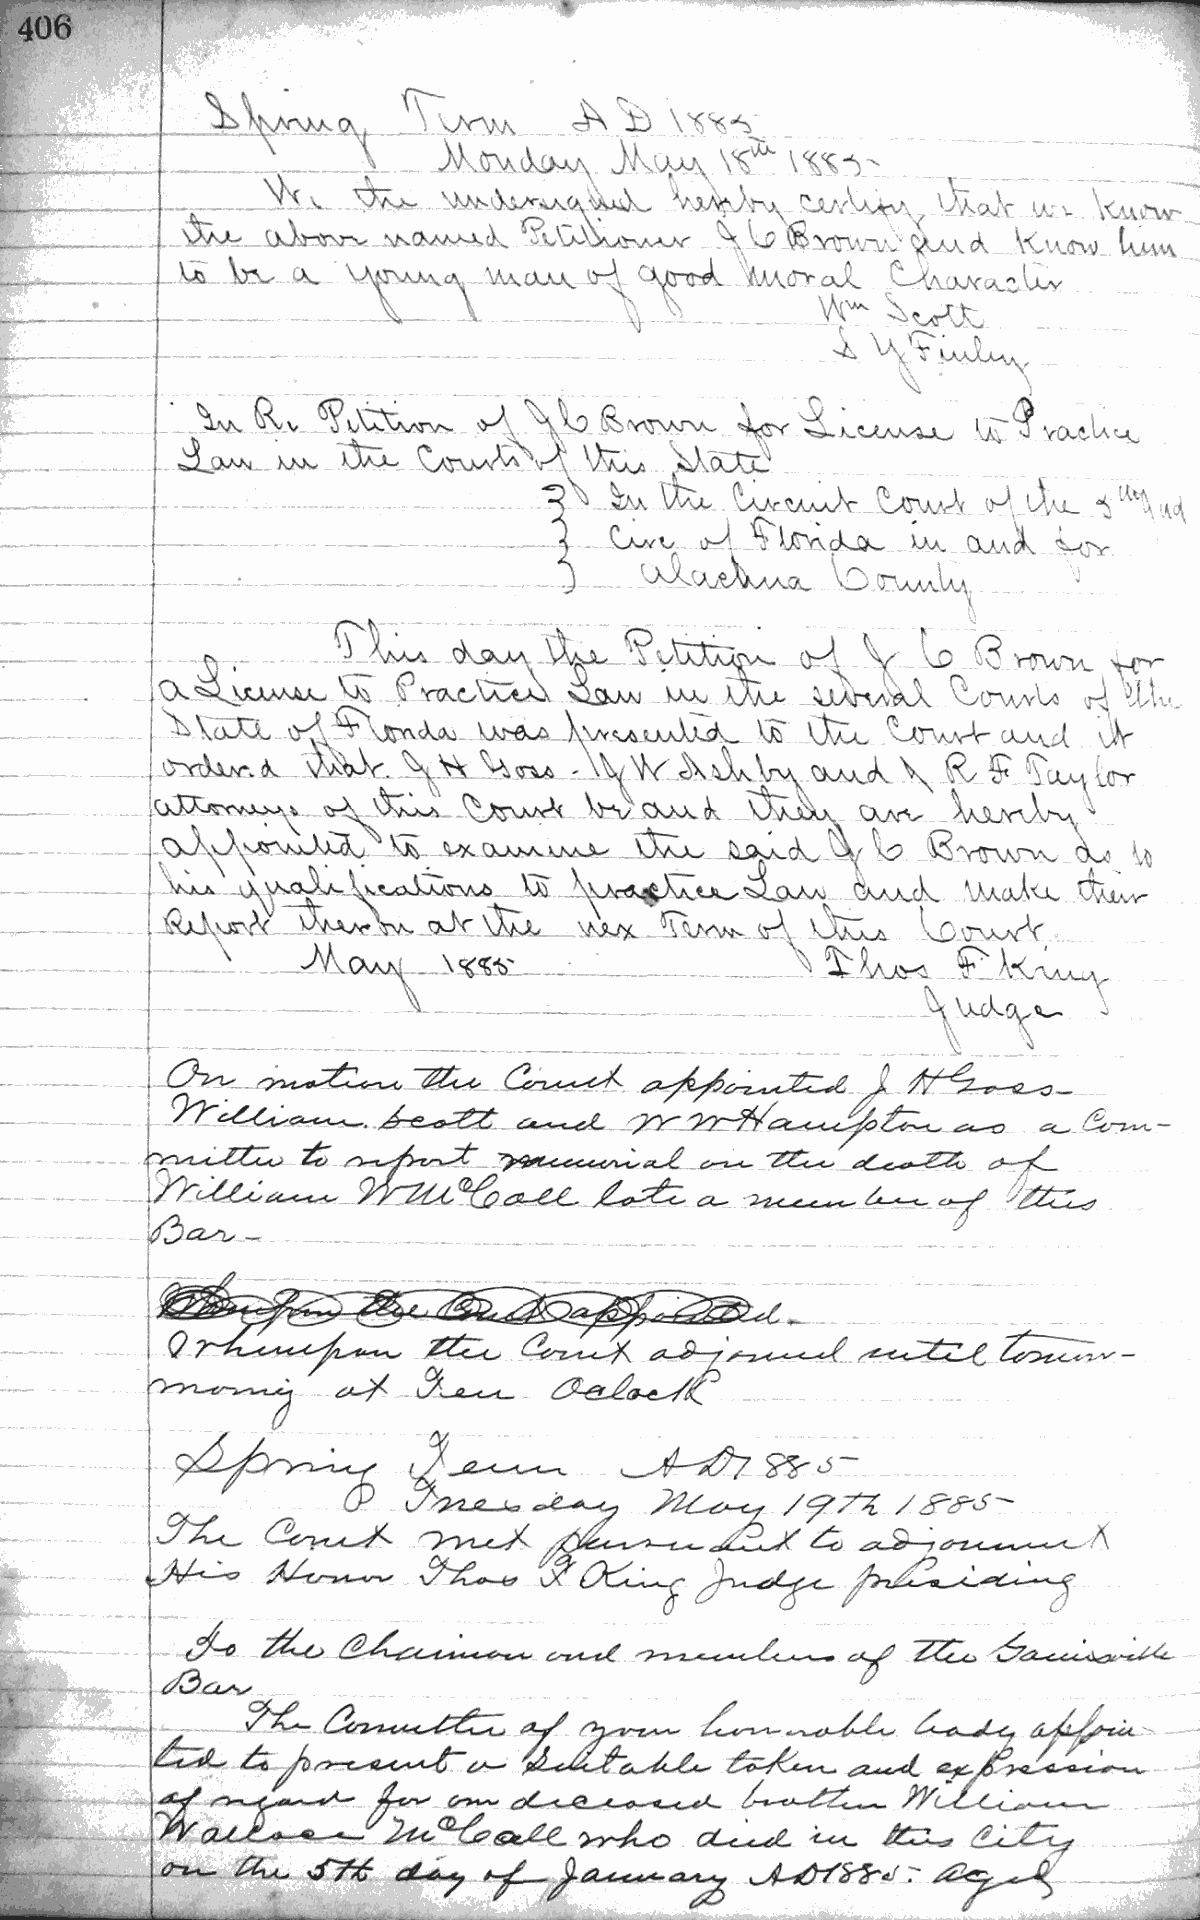 406
Spring Term A D 1885
Monday May 18th 1885-
We the undersigned hereby certify that we know
the above named Petitioner J C Brown and know him
to be a young man of good moral Character
Wm Scott
S Y Finley
In Re Petition of J C Brown for License to Practice
Law in the Courts of this State
} In the Circuit Court of the 5th Jud
} Circ of Florida in and for
} Alachua County
This day the Petition of J C Brown for
a License to Practice Law in the several Courts of the
State of Florida was presented to the Court and it
ordered that J H Goss - J W Ashby and R F Taylor
attorneys of this Court be and they are hereby
appointed to examine the said J C Brown as to
his qualifications to practice Law and make their
Report theron at the nex Term of this Court
May 1885 Thos F King
Judge
On motion the Court appointed J H Goss-
William Scott and W W Hampton as a Com-
mittee to report memorial on the death of
William W McCall late a member of this
Bar-
Whereupon the Court appointed.
Whereupon the Court adjourned until tomorr-
morning at Ten Oclock
Spring Term A D 1885
Tuesday May 19th 1885-
The Court met pursuant to adjournment
His Honor Thos F King Judge presiding
To the Chairman and members of the Gainesville
Bar
The Committee of your honorable body appoin
ted to present a Suitable token and expression
of regard for our deceased brother William
Wallace McCall who died in this City
on the 5th day of January AD 1885. aged